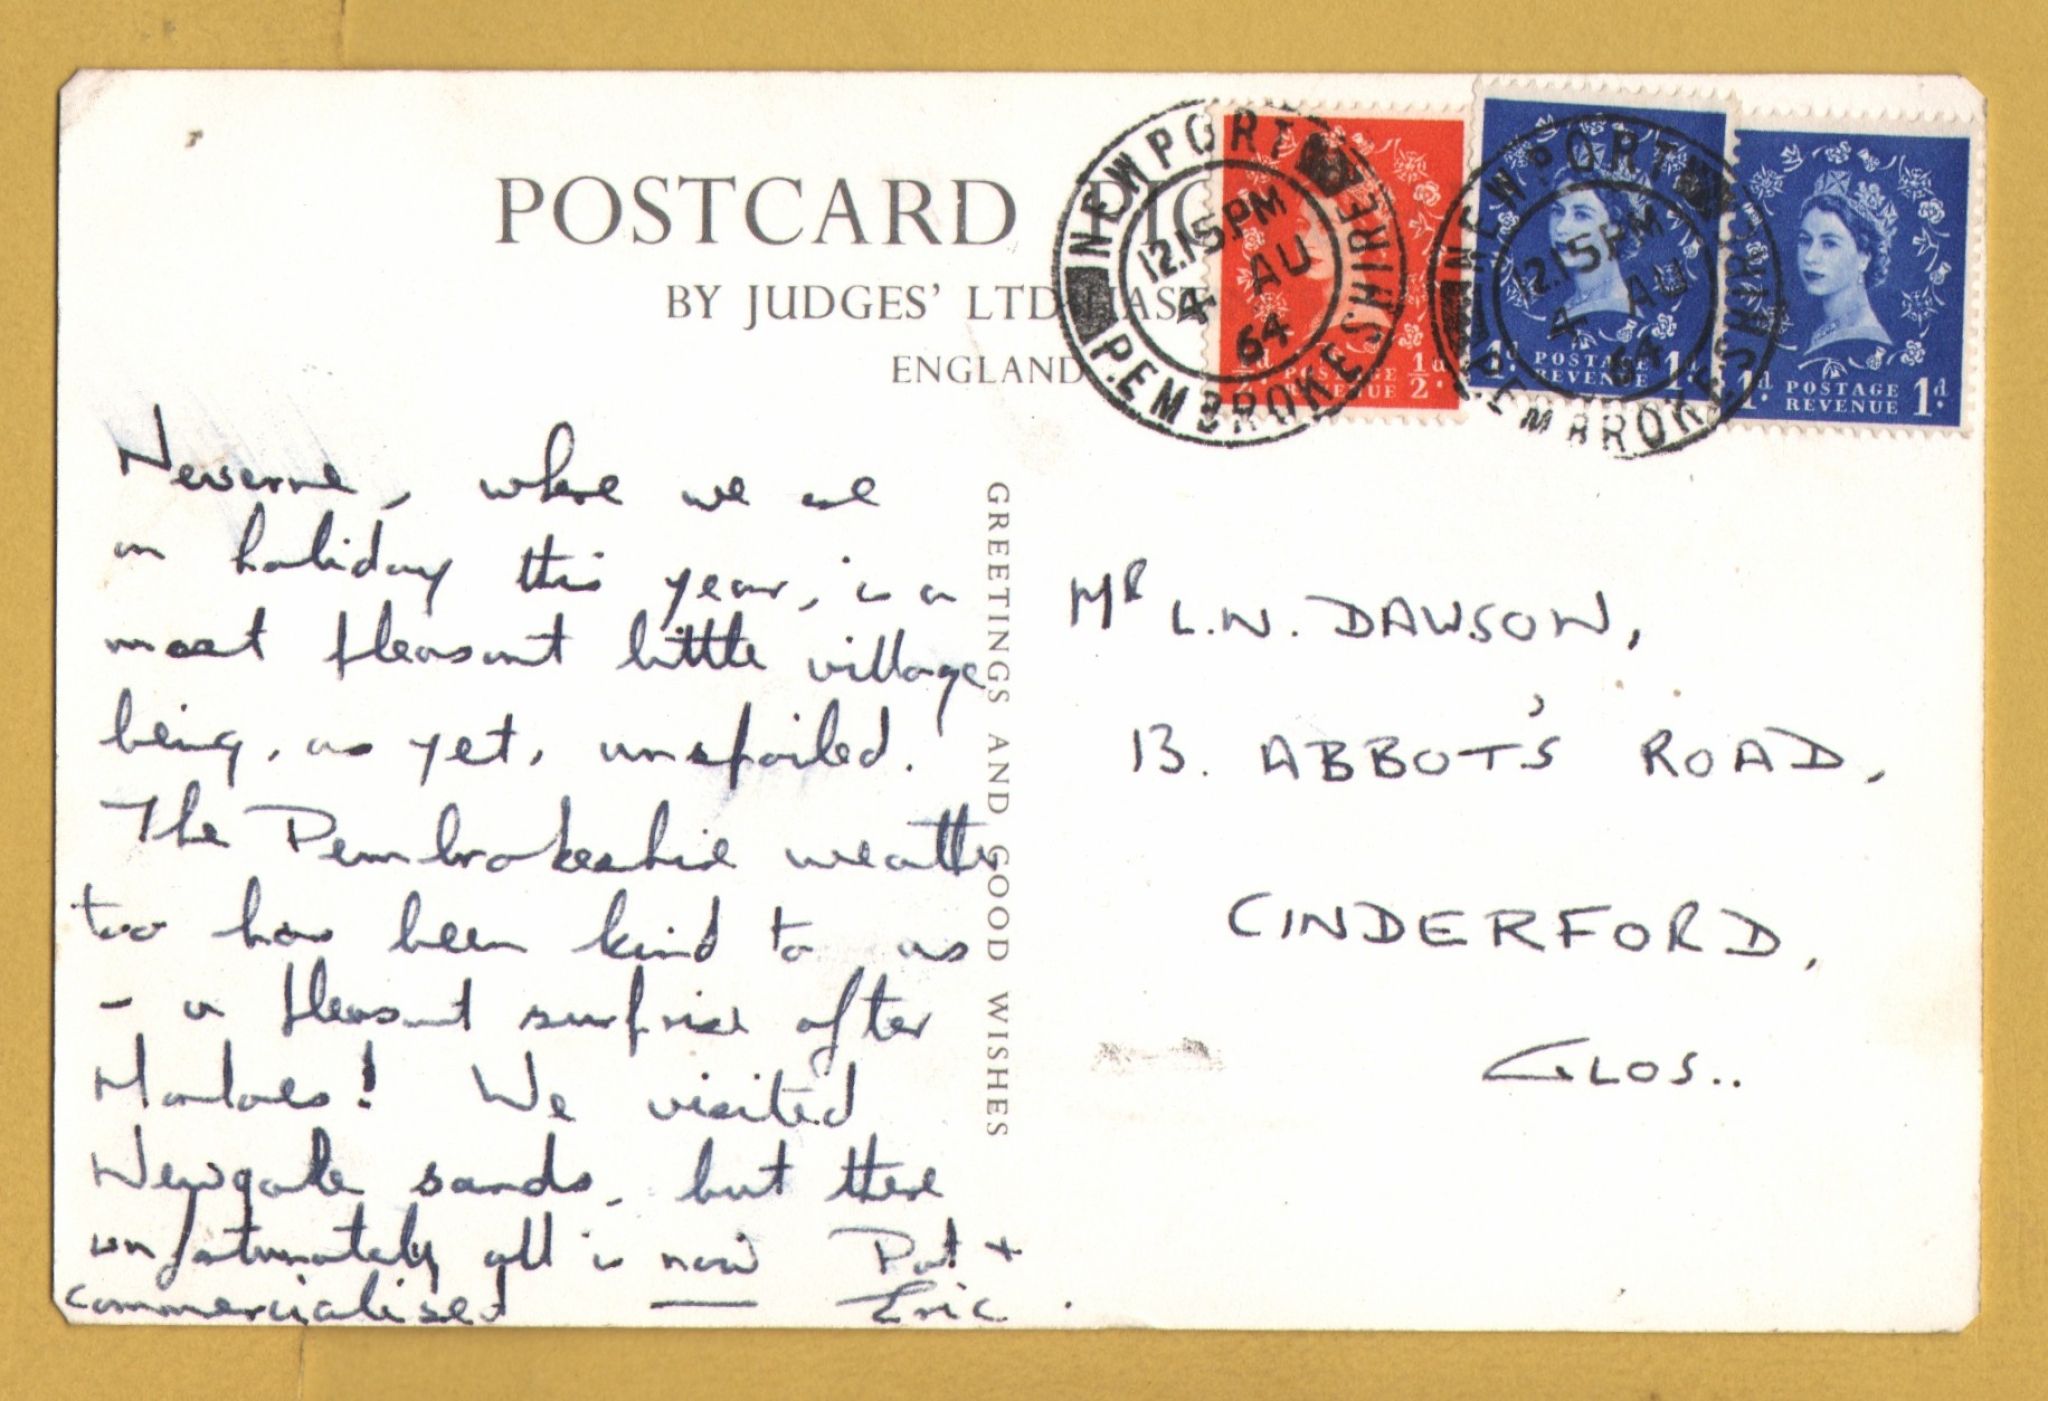 POSTCARD PIC
BY JUDGES' LTD HAST
ENGLAND
NEWPORT
PEMBROKESHIRE
12.15PM
4 AU
64
NEWPORT
PEMBROKESHIRE
12.15PM
4 AU
64
½d POSTAGE ½d
REVENUE
1d POSTAGE 1d
REVENUE
1d POSTAGE 1d
REVENUE
where we are
on holiday this year, is a
most pleasant little village
being, as yet, unspoiled.
The Pembrokeshire weather
too has been kind to us
- a pleasant surprise after
Marloes! We visited
Newgale sands, but there
unfortunately all is now
commercialised —
Pat +
Eric.
GREETINGS AND GOOD WISHES
MR L.N. DAWSON,
13. ABBOT'S ROAD,
CINDERFORD,
GLOS..